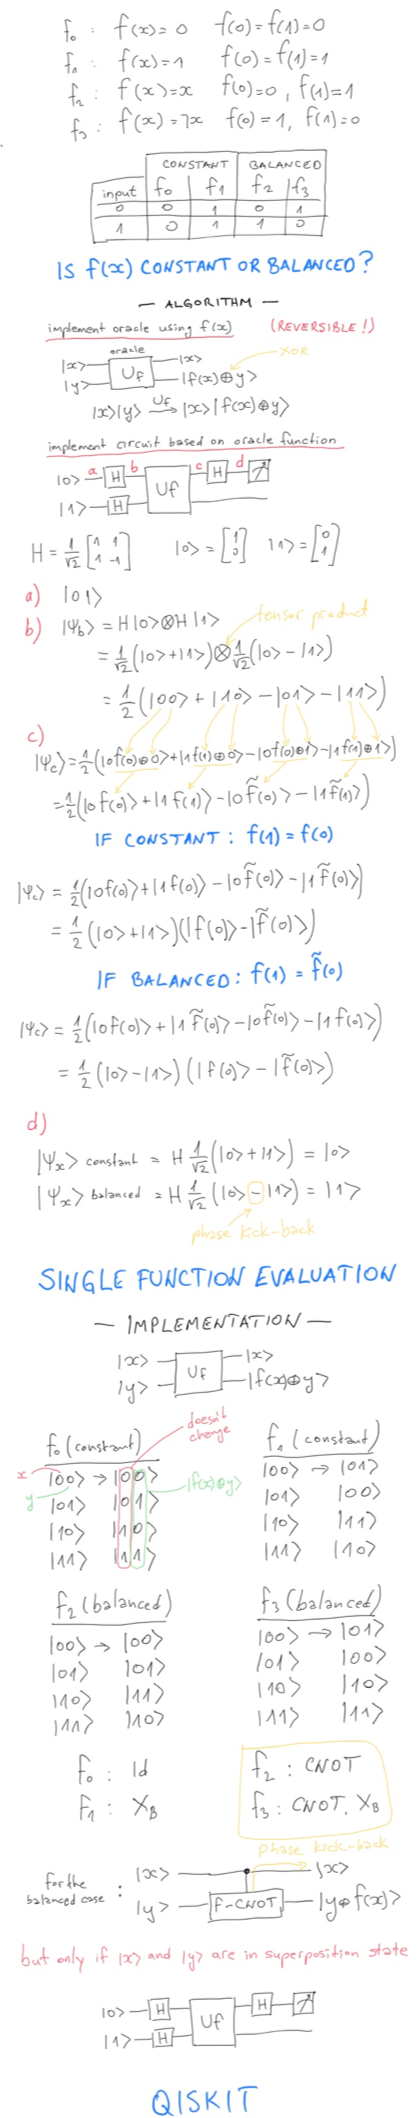 f₀ : f(x)=0 f(0)=f(1)=0
f₁ : f(x)=1 f(0)=f(1)=1
f₂ : f(x)=x f(0)=0, f(1)=1
f₃ : f(x)=¬x f(0)=1, f(1)=0
CONSTANT BALANCED
input f₀ f₁ f₂ f₃
0 0 1 0 1
1 0 1 1 0
IS f(x) CONSTANT OR BALANCED?
— ALGORITHM —
implement oracle using f(x) (REVERSIBLE!)
oracle
XOR
|x> Uf |x>
|y> |f(x)⊕y>
|x>|y> Uf→ |x>|f(x)⊕y>
implement circuit based on oracle function
|0> a H b Uf c H d
|1> H
H = 1/√2 [1 1; 1 -1] |0> = [1; 0] |1> = [0; 1]
a) |01>
tensor product
b) |Ψb> = H|0>⊗H|1>
= 1/√2(|0>+|1>)⊗1/√2(|0>-|1>)
= 1/2(|00>+|10>-|01>-|11>)
c)
|Ψc> = 1/2(|0f(0)⊕0>+|1f(1)⊕0>-|0f(0)⊕1>-|1f(1)⊕1>)
= 1/2(|0f(0)>+|1f(1)>-|0f̃(0)>-|1f̃(1)>)
IF CONSTANT: f(1)=f(0)
|Ψc> = 1/2(|0f(0)>+|1f(0)>-|0f̃(0)>-|1f̃(0)>)
= 1/2(|0>+|1>)(|f(0)>-|f̃(0)>)
IF BALANCED: f(1)=f̃(0)
|Ψc> = 1/2(|0f(0)>+|1f̃(0)>-|0f̃(0)>-|1f(0)>)
= 1/2(|0>-|1>)(|f(0)>-|f̃(0)>)
d)
|Ψx> constant = H 1/√2(|0>+|1>) = |0>
|Ψx> balanced = H 1/√2(|0>-|1>) = |1>
phase kick-back
SINGLE FUNCTION EVALUATION
— IMPLEMENTATION —
|x> Uf |x>
|y> |f(x)⊕y>
doesn't
change
f₀ (constant)
x |00> → |00>
y |01> |01> |f(x)⊕y>
|10> |10>
|11> |11>
f₁ (constant)
|00> → |01>
|01> |00>
|10> |11>
|11> |10>
f₂ (balanced)
|00> → |00>
|01> |01>
|10> |11>
|11> |10>
f₃ (balanced)
|00> → |01>
|01> |00>
|10> |10>
|11> |11>
f₀ : Id
F₁ : X_B
f₂ : CNOT
f₃ : CNOT, X_B
phase kick-back
for the
balanced case :
|x> |x>
|y> F-CNOT |y⊕f(x)>
but only if |x> and |y> are in superposition state
|0> H Uf H
|1> H
QISKIT